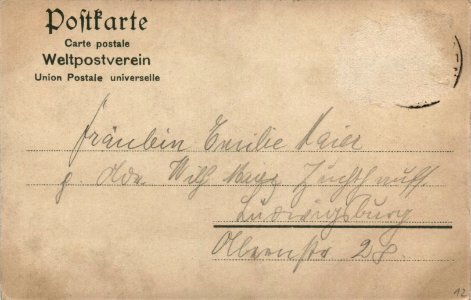 Postkarte
Carte postale
Weltpostverein
Union Postale universelle
Fräulein Emilie Maier
Wilh.
Ludwigsburg
28.
12